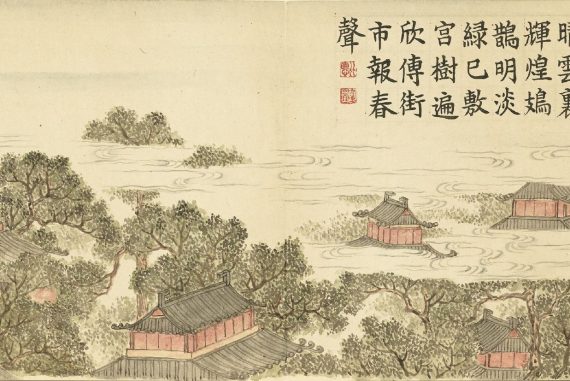 晴雲裏
輝煌鳷
鵲明淡
綠已敷
宮樹遍
欣傳街
市報春
聲